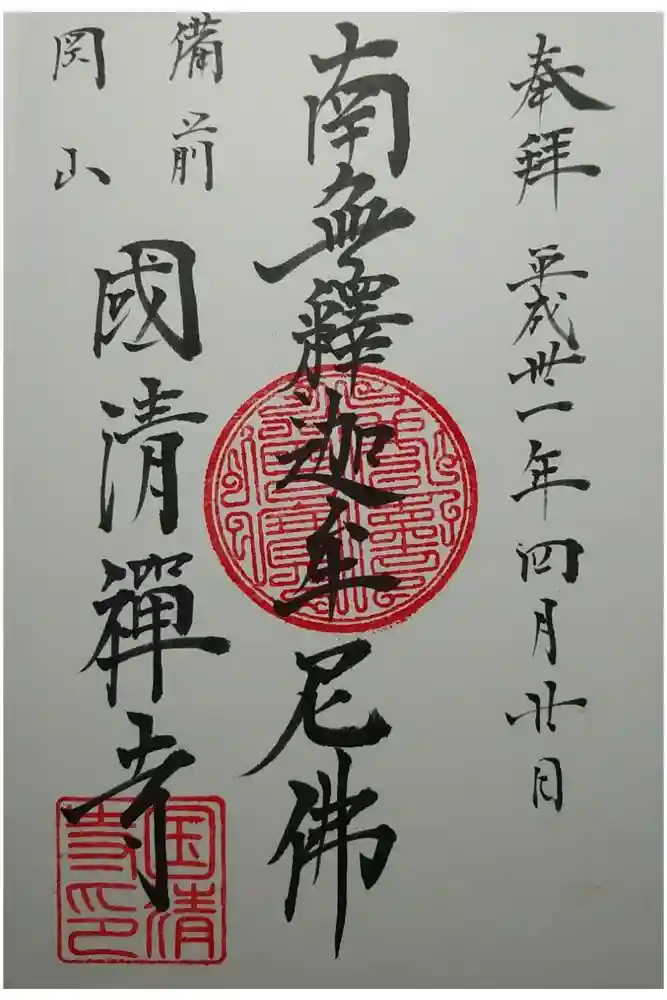 奉拜 平成卅一年四月廿日
南無釋迦牟尼佛
備前
岡山
國清禪寺
国清寺印